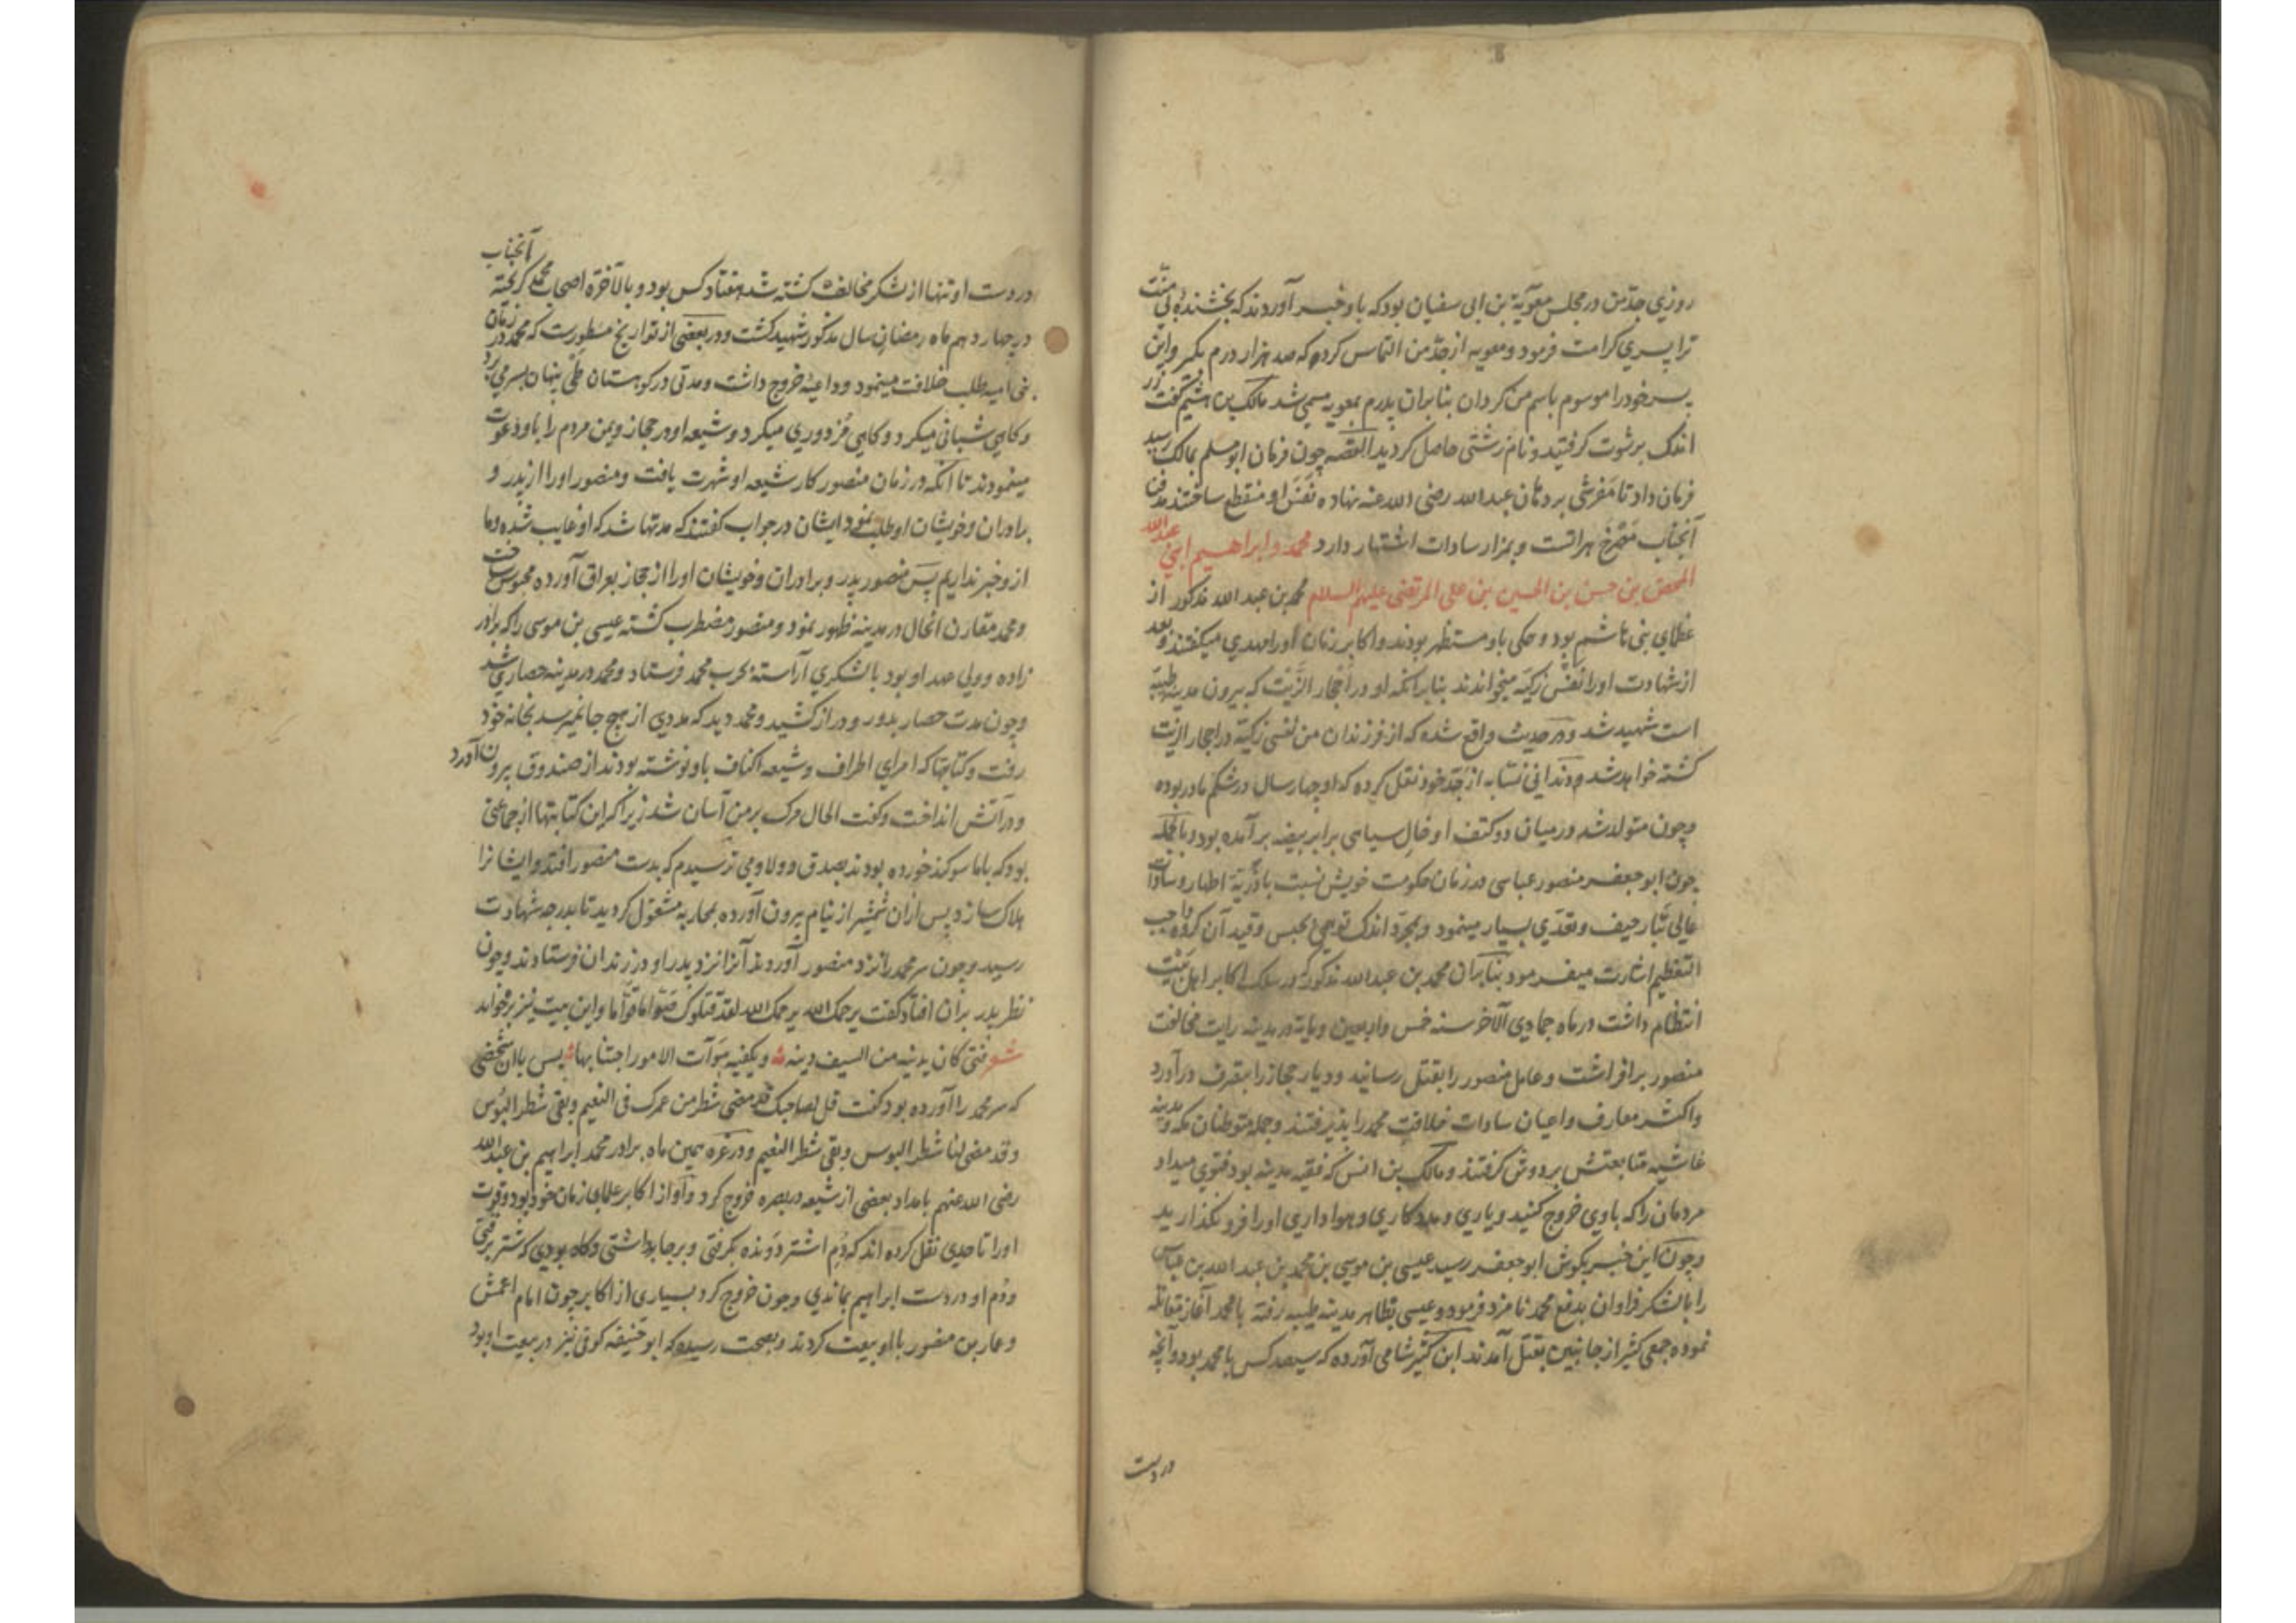 روزی جد من در مجلس معویة بن ابی سفیان بود که باو خبر آوردند که بخشنده بی منت
ترا پسری کرامت فرمود و معویه از جد من التماس کرد که صد هزار درم بگیر و این
پسر خود را موسوم باسم من کردان بنابران پدرم بمعویه مسمی شد مالک بن هشیم کفت زر
اندک برشوت کرفتید و نام زشتی حاصل کردید القصه چون فرمان ابو مسلم بمالک رسید
فرمان داد تا مفرشی بر دهان عبد الله رضی الله عنه نهاده نفس او منقطع ساختند مدفن
آنجناب هراتست و بمزار سادات اشتهار دارد محمد و ابراهیم ابنی عبد الله
المحض بن حسن بن الحسین بن علی المرتضی علیهم السلام محمد بن عبد الله مذکور از
عظمای بنی هاشم بود و باو مستظهر بودند و اکابر زمان او را مهدی میکفتند و بعد
از شهادت او را نفس زکیه میخواندند بنابر آنکه او در احجار الزیت که بیرون مدینه طیبه
است شهید شد و در حدیث واقع شده که از فرزندان من نفس زکیه در احجار الزیت
کشته خواهد شد و از جد خود نقل کرده که او چهار سال در شکم مادر بوده
و چون متولد شد در میان دو کتف او خال سیاهی برابر بیضه برآمده بود و بالجمله
چون ابو جعفر منصور عباسی در زمان حکومت خویش نسبت با ذریة اطهار و سادات
عالی تبار حیف و تعدی بسیار مینمود و بمجرد اندک توهمی بحبس و قید آن کروه واجب
التعظیم اشارت میفرمود بنابران محمد بن عبد الله مذکور که در سلک اکابر اهل بیت
انتظام داشت در ماه جمادی الآخر سنه خمس و اربعین و مایه در مدینه رایت مخالفت
منصور برافراشت و عامل منصور را بقتل رسانید و دیار حجاز را بتصرف درآورد
و اکثر معارف و اعیان سادات خلافت محمد را پذیرفتند و جمله متوطنان مکه و مدینه
غاشیه متابعتش بر دوش کرفتند و مالک بن انس که فقیه مدینه بود فتوی میداد
مردمان را که با وی خروج کنید و یاری و مددکاری و هواداری او را فرو نکذارید
و چون این خبر بکوش ابو جعفر رسید عیسی بن موسی بن محمد بن عبد الله بن عباس
را با لشکر فراوان بدفع محمد نامزد فرمود و عیسی بظاهر مدینه طیبه رفته با محمد آغاز مقاتله
نموده جمعی کثیر از جانبین بقتل آمدند ابن کثیر شامی آورده که سیصد کس با محمد بود و آنچه
در دست
در دست او تنها از لشکر مخالف کشته شد هفتاد کس بود و بالآخره اصحاب محمد کریخته آنجناب
در چهاردهم ماه رمضان سال مذکور شهید کشت و در بعضی از تواریخ مسطورست که محمد در زمان
بنی امیه طلب خلافت مینمود و داعیه خروج داشت و مدتی در کوهستان طی پنهان بسر می برد
و کاهی شبانی میکرد و کاهی مزدوری میکرد و شیعه او در حجاز و یمن مردم را باو دعوت
مینمودند تا آنکه در زمان منصور کار شیعه او شهرت یافت و منصور او را از پدر و
برادران و خویشان او طلب نمود ایشان در جواب کفتند که مدتها شد که او غایب شده و ما
ازو خبر نداریم پس منصور پدر و برادران و خویشان او را از حجاز بعراق آورده محبوس ساخت
و محمد مقارن آنحال در مدینه ظهور نمود و منصور مضطرب کشته عیسی بن موسی را که برادر
زاده و ولی عهد او بود با لشکری آراسته بحرب محمد فرستاد و محمد در مدینه حصاری شد
و چون مدت حصار بدور و دراز کشید و محمد دید که مددی از هیچ جا نمیرسد بخانه خود
رفت و کتابتها که امرای اطراف و شیعه اکناف باو نوشته بودند از صندوق بیرون آورد
و در آتش انداخت و کفت الحال مرک بر من آسان شد زیرا که این کتابتها از جماعتی
بود که با ما سوکند خورده بودند بصدق و ولا و می ترسیدم که بدست منصور افتد و ایشانرا
هلاک سازد پس ازان شمشیر از نیام بیرون آورده بمحاربه مشغول کردید تا بدرجه شهادت
رسید و چون سر محمد را نزد منصور آوردند آنرا نزد پدر او در زندان فرستادند و چون
نظر پدر بران افتاد کفت یرحمک الله یرحمک الله لقد قتلوک صواما قواما و این بیت نیز برخواند
شعر فتی کان یدنیه من السیف دینه ؞ و یکفیه سوآت الامور اجتنابها ؞ پس با آن شخصی
که سر محمد را آورده بود کفت قل لصاحبک قد مضی شطر من عمرک فی النعیم و بقی شطر البؤس
و قد مضی لنا شطر البوس و بقی شطر النعیم و در غره همین ماه برادر محمد ابراهیم بن عبد الله
رضی الله عنهم بامداد بعضی از شیعه در بصره خروج کرد و او از اکابر علمای زمان خود بود و قوت
او را تا حدی نقل کرده اند که دم اشتر دونده بکرفتی و بر جا بداشتی و کاه بودی که شتر برفتی
و دم او در دست ابراهیم بماندی و چون خروج کرد بسیاری از اکابر چون امام اعمش
و بن منصور با او بیعت کردند و بصحت رسیده که ابو حنیفه کوفی نیز در بیعت او بود